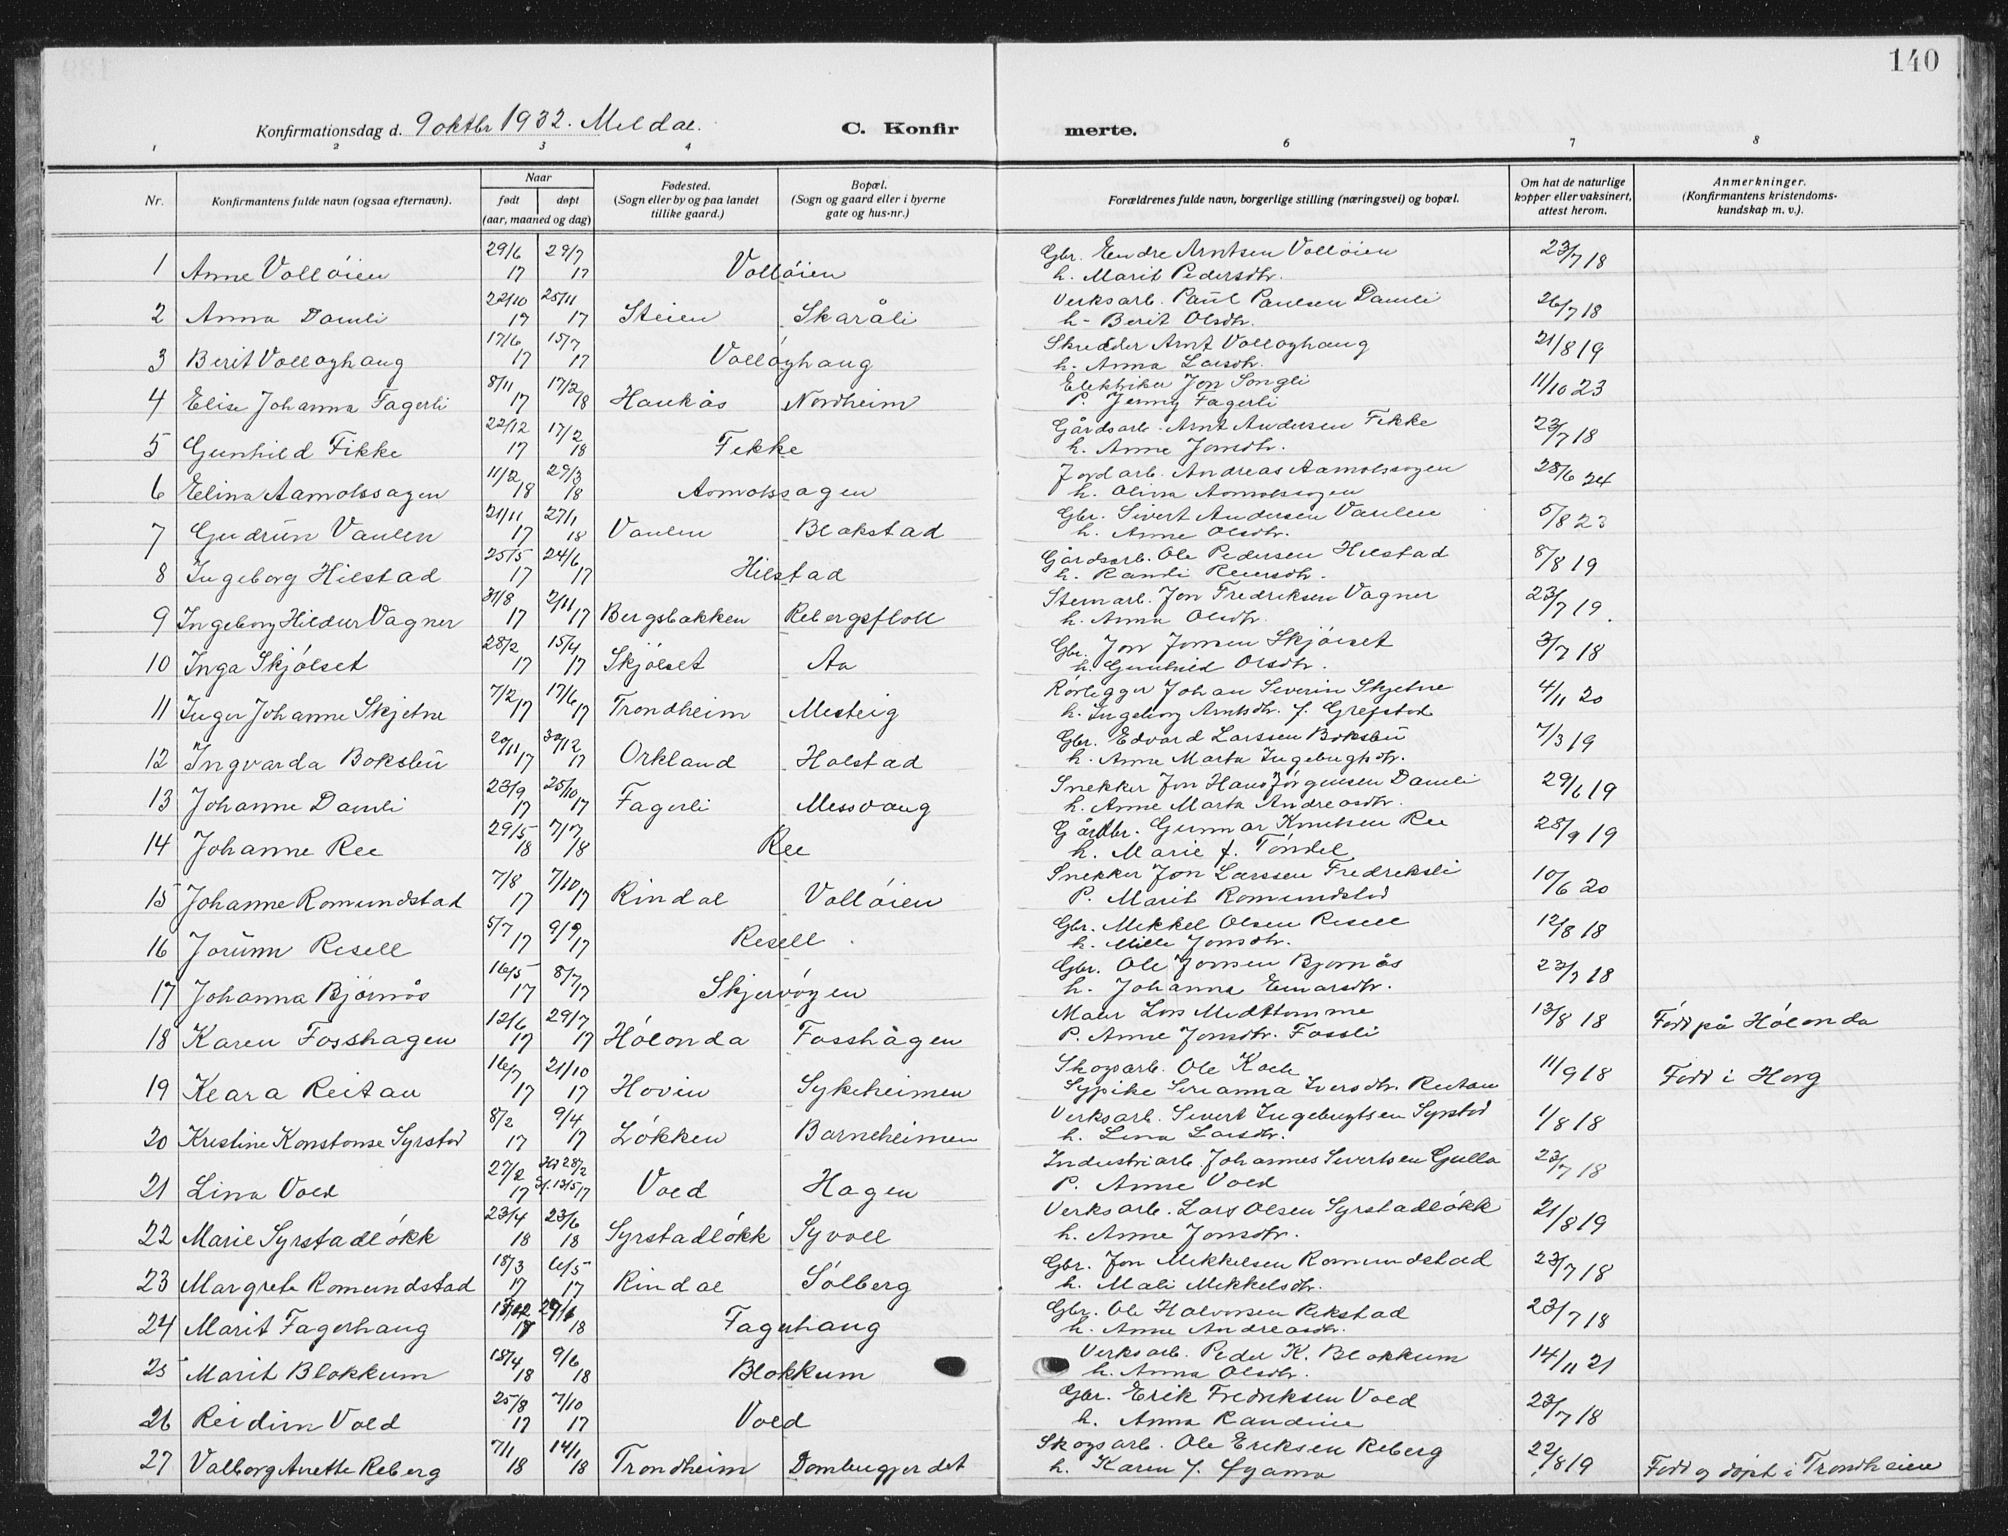 140
Konfirmationsdag d. 9 oktbr 1932. Meldal.
C. Konfirmerte.
1 2 3 4 6 7 8
Nr. Konfirmantens fulde navn (ogsaa efternavn). Naar født døpt (aar, maaned og dag) Fødested. (Sogn eller by og paa landet tillike gaard.) Bopæl. (Sogn og gaard eller i byerne gate og hus-nr.) Forældrenes fulde navn, borgerlige stilling (næringsvei) og bopæl. Om hat de naturlige kopper eller vaksinert, attest herom. Anmerkninger. (Konfirmantens kristendomskundskap m. v.).
1 Anne Volløien 29/6 17 29/7 17 Volløien Gbr. Endre Arntsen Volløien h. Marit Pedersdtr. 23/7 18
2 Anna Damli 22/10 17 25/11 17 Steien Skaråli Verksarb. Paul Paulsen Damli h. Berit Olsdtr. 26/7 18
3 Berit Volløyhaug 17/6 17 15/7 17 Volløyhaug Skredder Arnt Volløyhaug h. Anna Larsdtr. 21/8 19
4 Elise Johanna Fagerli 8/11 17 17/2 18 Haukås Nordheim Elektriker Jon Songli P. Jenny Fagerli 11/10 23
5 Gunhild Fikke 22/12 17 17/2 18 Fikke Gårdsarb. Arnt Andersen Fikke h. Anne Jonsdtr. 23/7 18
6 Elina Aamotssagen 11/2 18 29/3 18 Aamotssagen Jordarb. Andreas Aamotssagen h. Olina Aamotssagen 28/6 24
7 Gudrun Vaulen 21/11 17 27/1 18 Vaulen Blokstad Gbr. Sivert Andersen Vaulen h. Anne Olsdtr. 5/8 23
8 Ingeborg Hilstad 25/5 17 24/6 17 Hilstad Gårdsarb. Ole Pedersen Hilstad h. Randi Reiersdtr. 8/8 19
9 Ingeborg Hildur Vagner 31/8 17 2/11 17 Bergsbakken Rebergsfloll Stenarb. Jon Fredriksen Vagner h. Anna Olsdtr. 23/7 19.
10 Inga Skjølset 28/2 17 15/4 17 Skjølset Aa Gbr. Jon Jonsen Skjølset h. Gunhild Olsdtr. 3/7 18
11 Inger Johanne Skjetne 7/2 17 17/6 17 Trondheim Mesteig Rørlegger Johan Severin Skjetne h. Ingeborg Arntsdtr. f. Grefstad 4/11 20
12 Ingvarda Bokslu 20/11 17 30/12 17 Orkland Halstad Gbr. Edvard Larssen Bokslu h. Anne Marta Ingebrigtsdtr. 7/3 19
13 Johanne Damli 23/9 17 25/10 17 Fagerli Messvang Snekker Jon Hans Jørgensen Damli h. Anne Marta Andreasdtr. 29/6 19
14 Johanne Ree 29/5 18 7/7 18 Ree Gårdbr. Gunnar Knutsen Ree h. Marie f. Tøndel 28/9 19
15 Johanne Romundstad 7/8 17 7/10 17 Rindal Volløien Snekker Jon Larssen Fredriksli P. Marit Romundstad 10/6 20
16 Jorunn Resell 5/7 17 9/9 17 Resell Gbr. Mikkel Olsen Resell h. Mille Jonsdtr. 12/8 18
17 Johanna Bjørnås 16/5 17 8/7 17 Skjervøyen Gbr. Ole Jonsen Bjørnås h. Johanna Einarsdtr. 23/7 18
18 Karen Fosshagen 12/6 17 29/7 17 Hølonda Fosshågen Maler Lars Midttømme P. Anne Jonsdtr. Fossli 13/8 18 Født på Hølonda
19 Klara Reitan 16/7 17 21/10 17 Hovin Sykeheimen Skogsarb. Ole Sypike Serianna Iversdtr. Reitan 11/9 18 Født i Horg
20 Kristine Konstanse Syrstad 8/2 17 9/4 17 Løkken Barneheimen Verksarb. Sivert Ingebrigtsen Syrstad h. Lina Larsdtr. 1/8 18
21 Lina Vold 27/2 17 Hj 28/2 St. 13/5 17 Vold Hagen Industriarb. Johannes Sivertsen Gulla P. Anne Vold 23/7 18
22 Marie Syrstadløkk 23/4 18 23/6 18 Syrstadløkk Syvoll Verksarb. Lars Olsen Syrstadløkk h. Anne Jonsdtr. 21/8 19
23 Margrete Romundstad 18/3 17 6/5 17 Rindal Solberg Gbr. Jon Mikkelsen Romundstad h. Mali Mikkelsdtr. 23/7 18
24 Marit Fagerhaug 18 Fagerhaug Gbr. Ole Halvorsen Rikstad h. Anne Andreasdtr. 23/7 18
25 Marit Blokkum 18/4 18 9/6 18 Blokkum Verksarb. Peder K. Blokkum h. Anna Olsdtr. 14/11 21
26 Reidun Vold 25/8 17 7/10 17 Vold Gbr. Erik Fredriksen Vold h. Anna Randine 23/7 18
27 Valborg Anette Reberg 7/1 18 14/1 18 Trondheim Dombugjerdet Skogsarb. Ole Eriksen Reberg h. Karen f. 22/8 19 Født og døpt i Trondheim